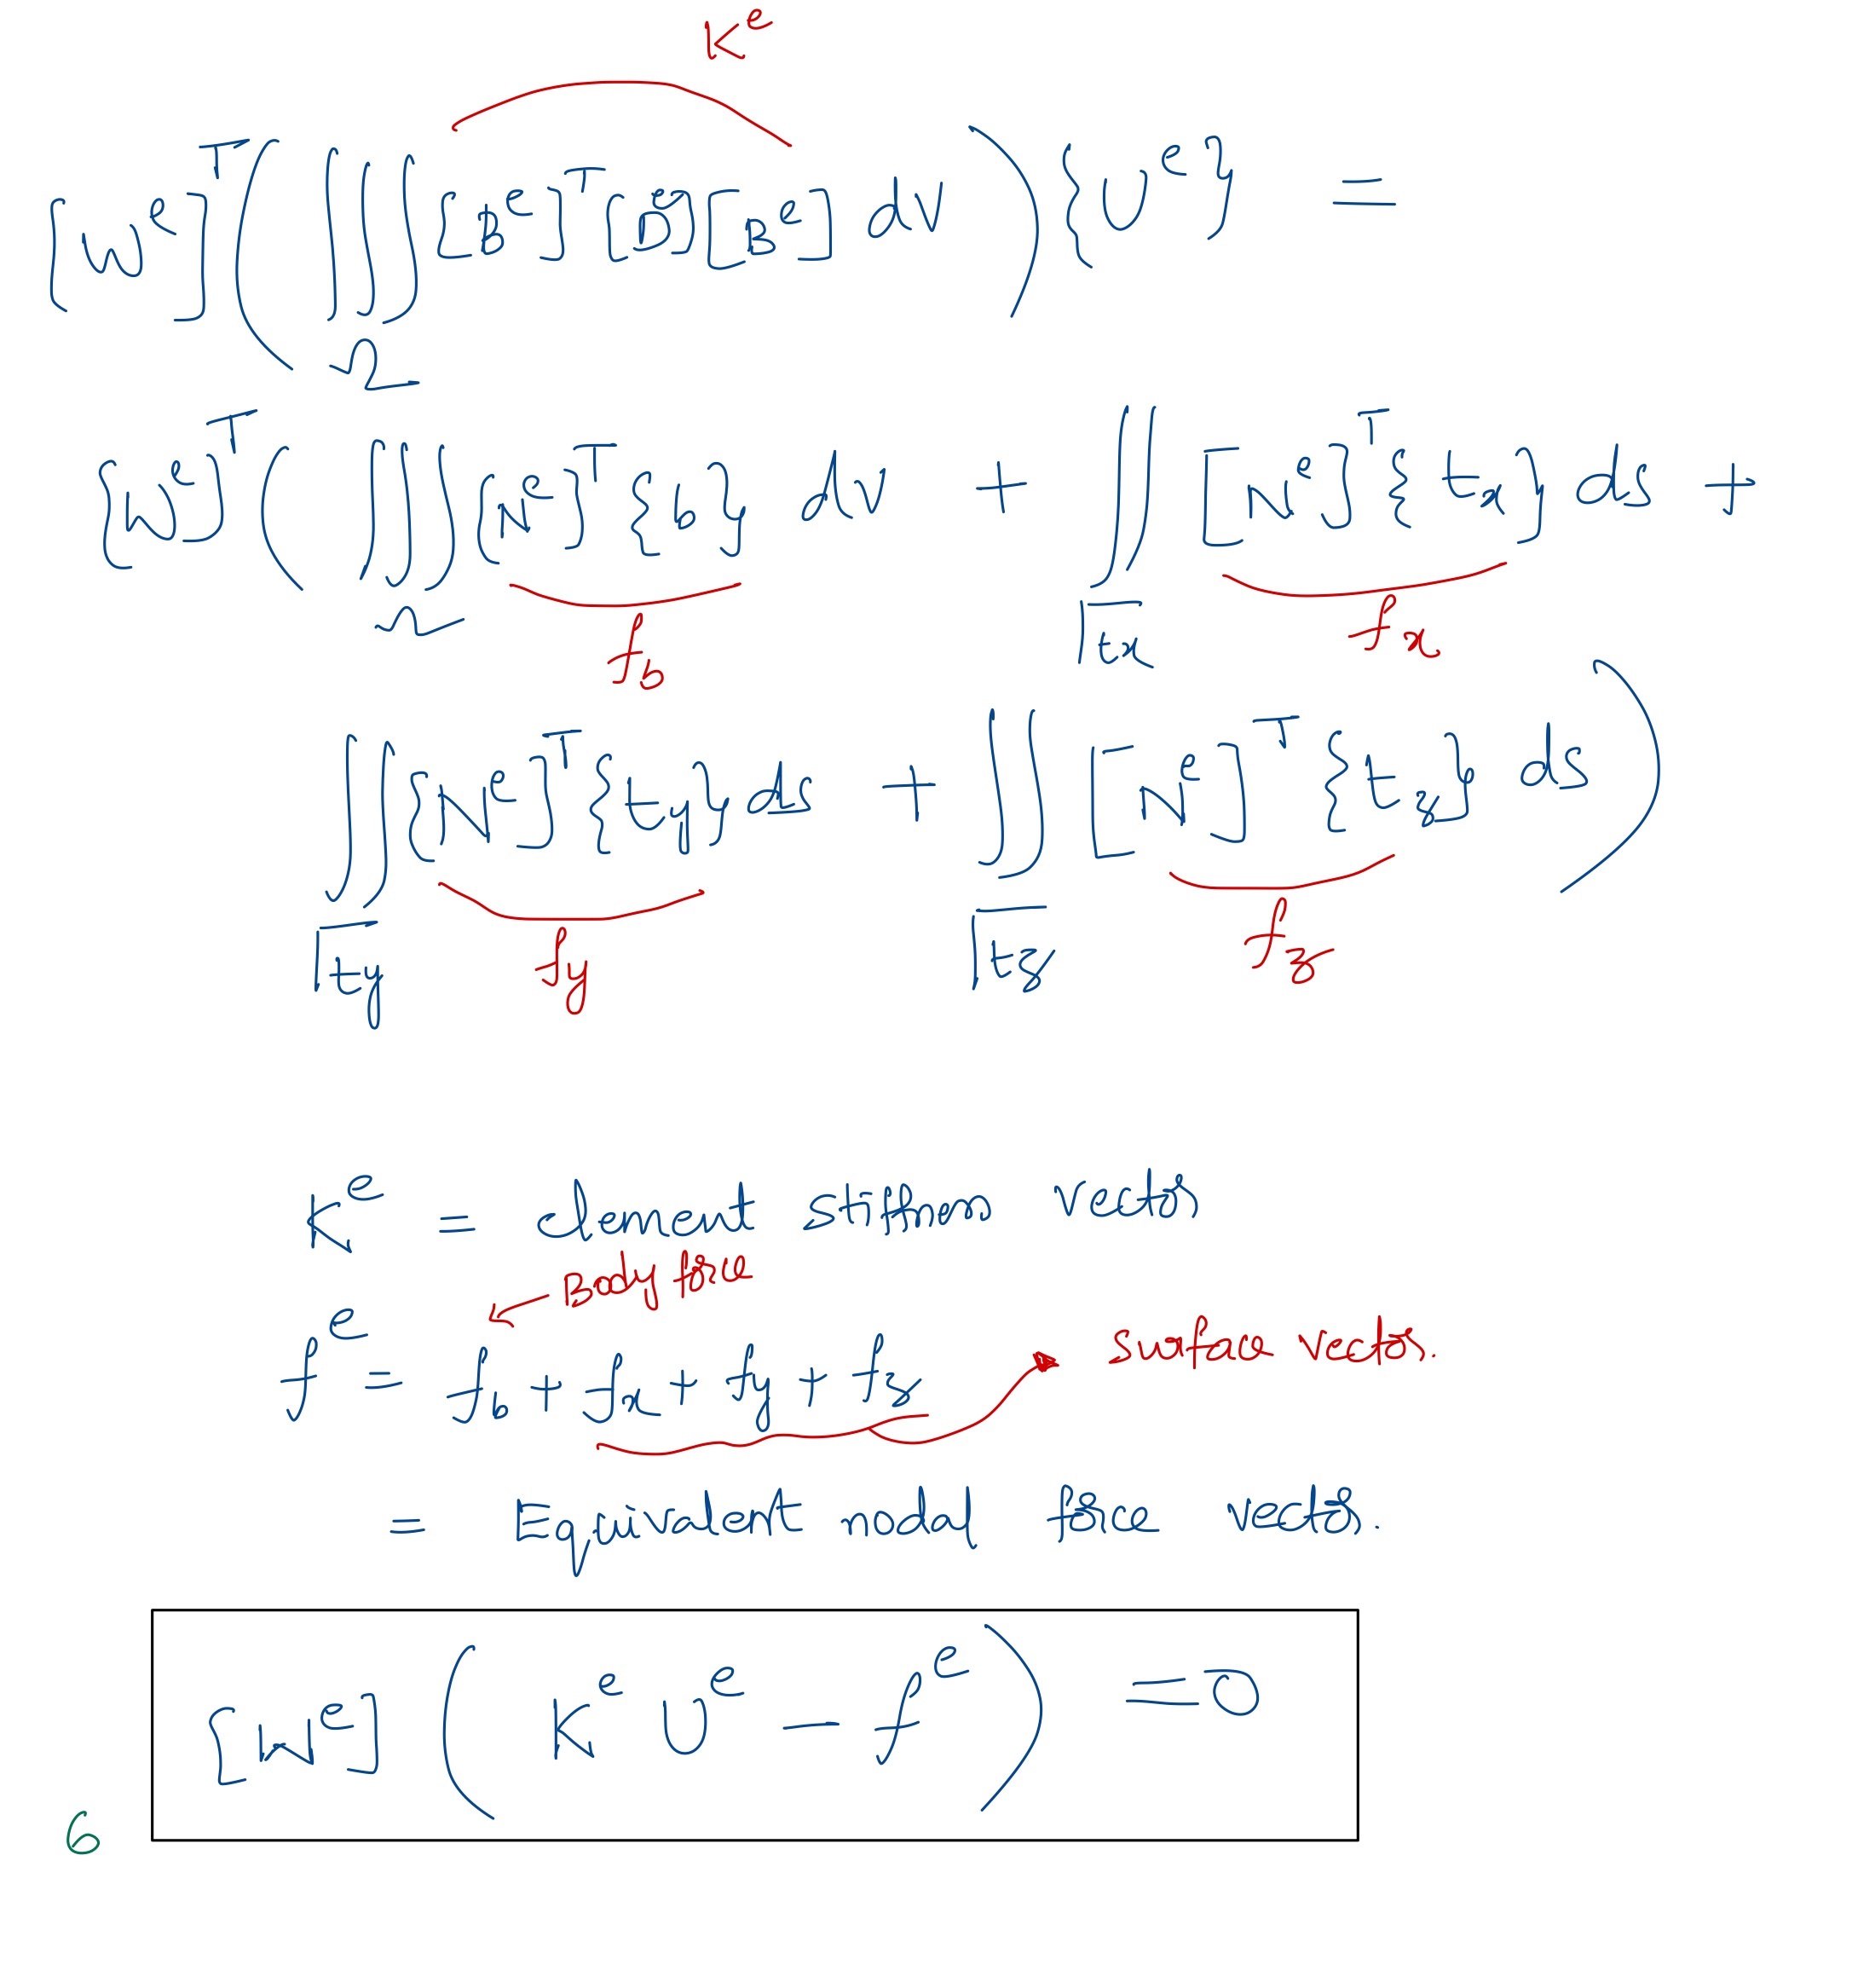 K^e
[W^e]^T ( ∭_Ω [B^e]^T [D^e] [B^e] dV ) {U^e} =
[W^e]^T ( ∭_Ω [N^e]^T {b} dv + ∬_Γtx [N^e]^T {t_x} ds +
f_b f_x
∬_Γty [N^e]^T {t_y} ds + ∬_Γtz [N^e]^T {t_z} ds )
f_y f_z
K^e = element stiffness vector
← Body force
f^e = f_b + f_x + f_y + f_z → surface vector.
= Equivalent nodal force vector.
[W^e] ( K^e U^e - f^e ) = 0
6